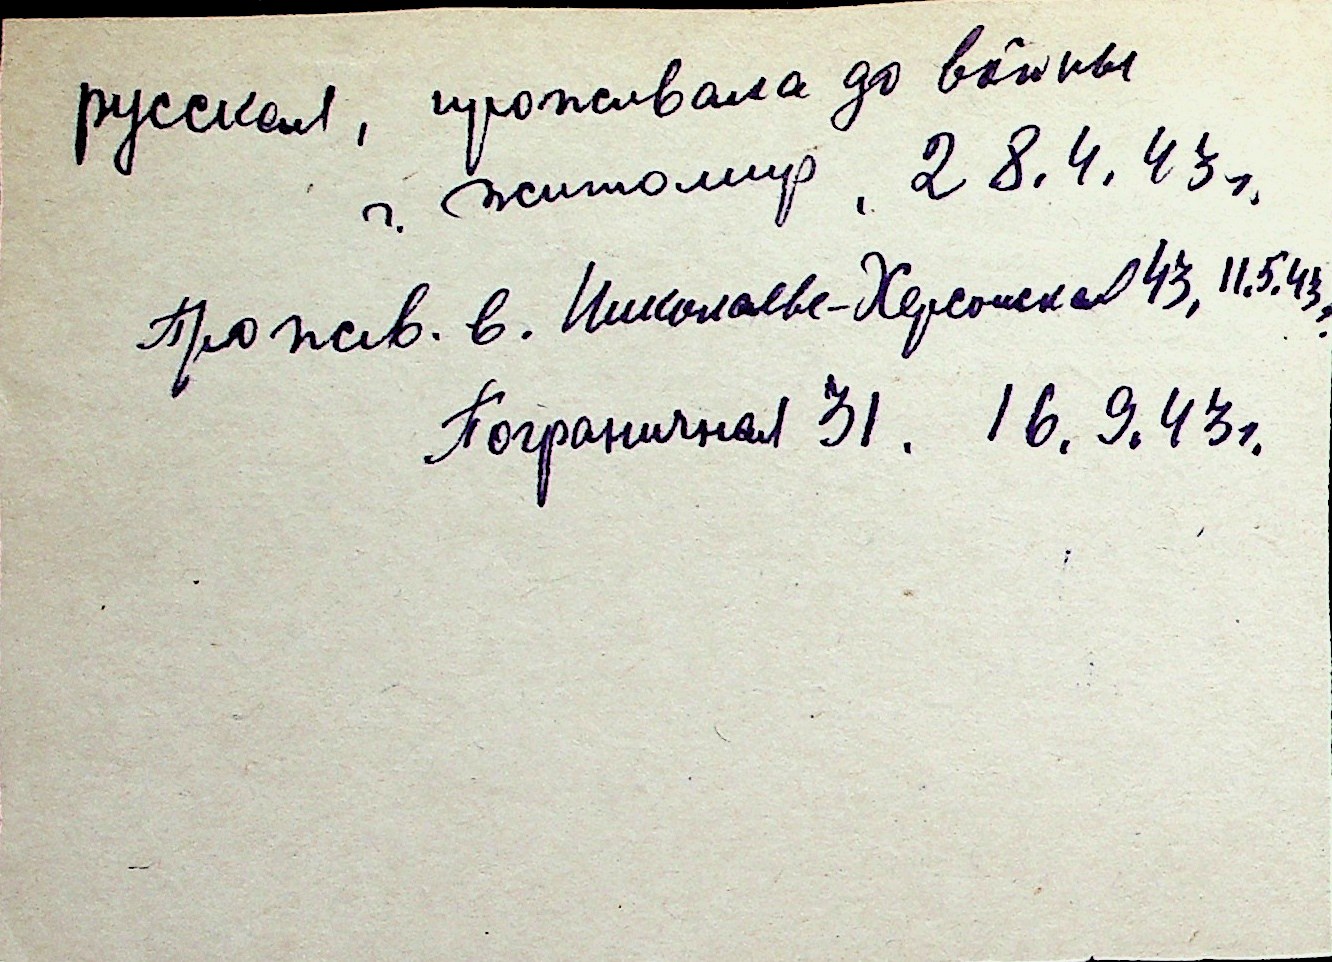 русская, проживала до войны
г. Житомир, 28.4.43г.
Прожив. в. Николаеве-Херсонская 43, 11.5.43г.
Пограничная 31. 16.9.43г.